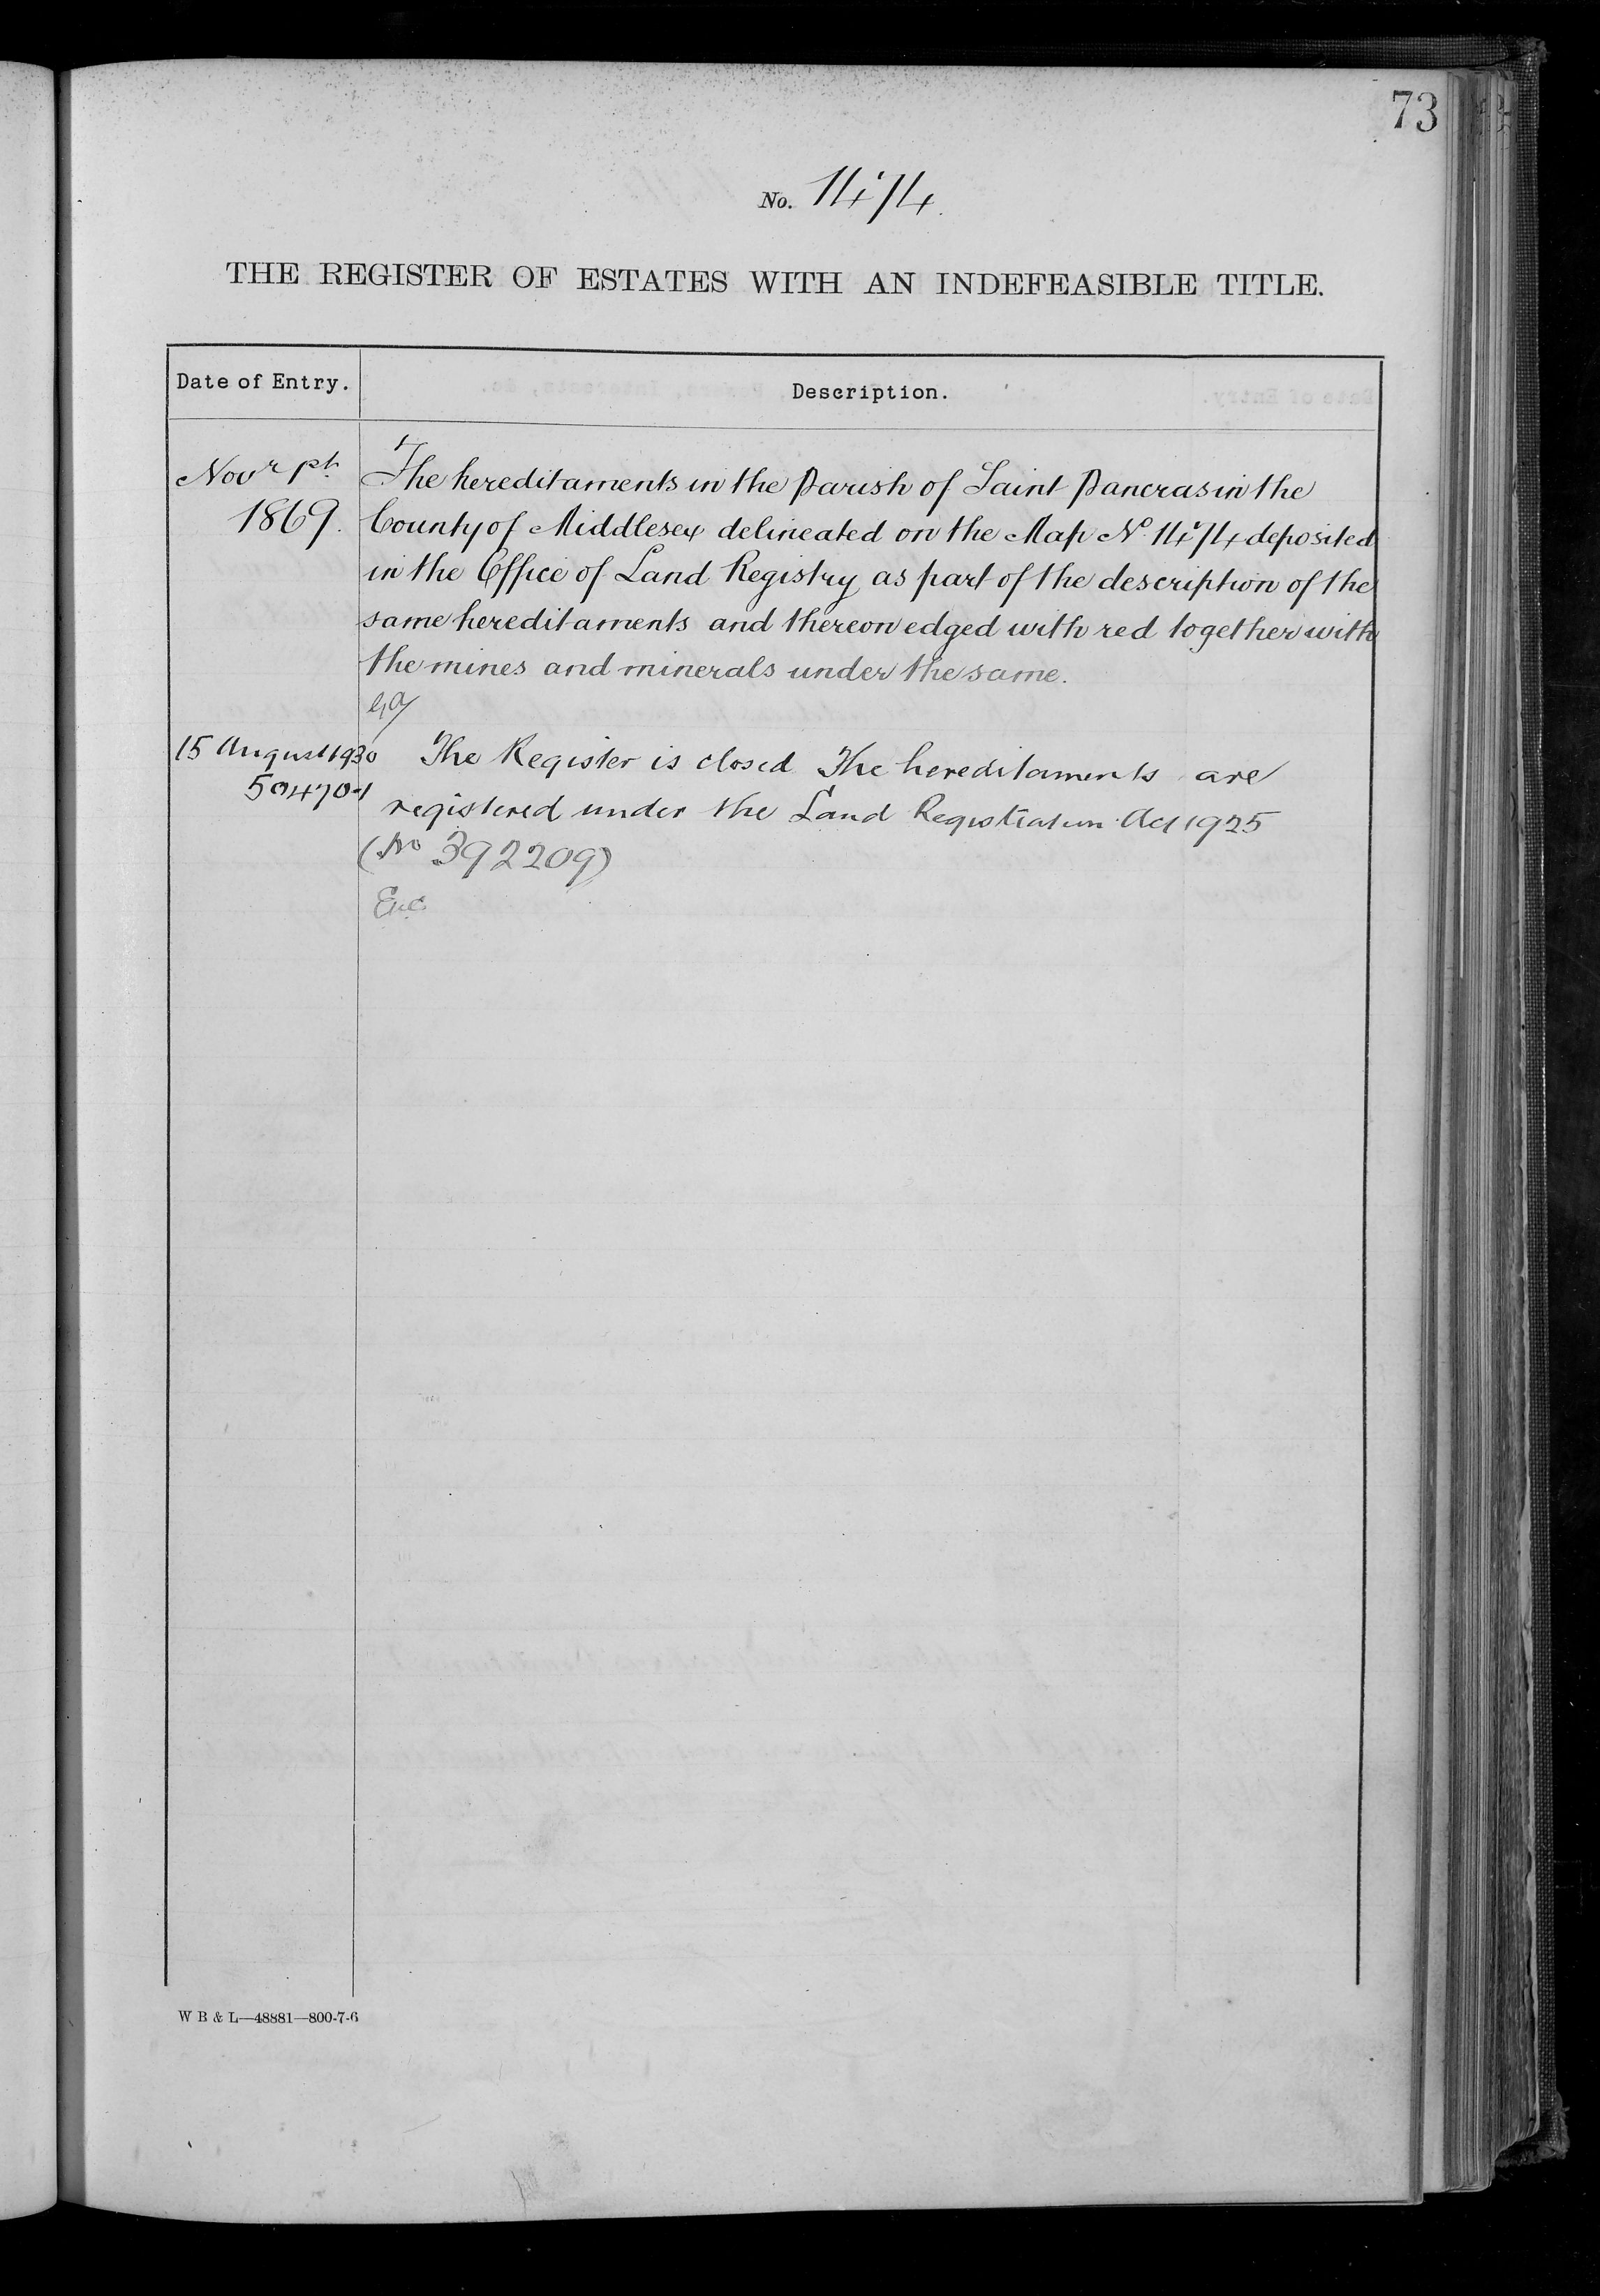 73
No. 1474.
THE REGISTER OF ESTATES WITH AN INDEFEASIBLE TITLE.
Date of Entry. Description.
Novr 1st The hereditaments in the Parish of Saint Pancras in the
1869. County of Middlesex delineated on the Map No 1474 deposited
in the Office of Land Registry as part of the description of the
same hereditaments and thereon edged with red together with
the mines and minerals under the same.
15 August 1930 The Register is closed The hereditaments are
registered under the Land Registration Act 1925
(No 392209)
W B & L—48881—800-7-6